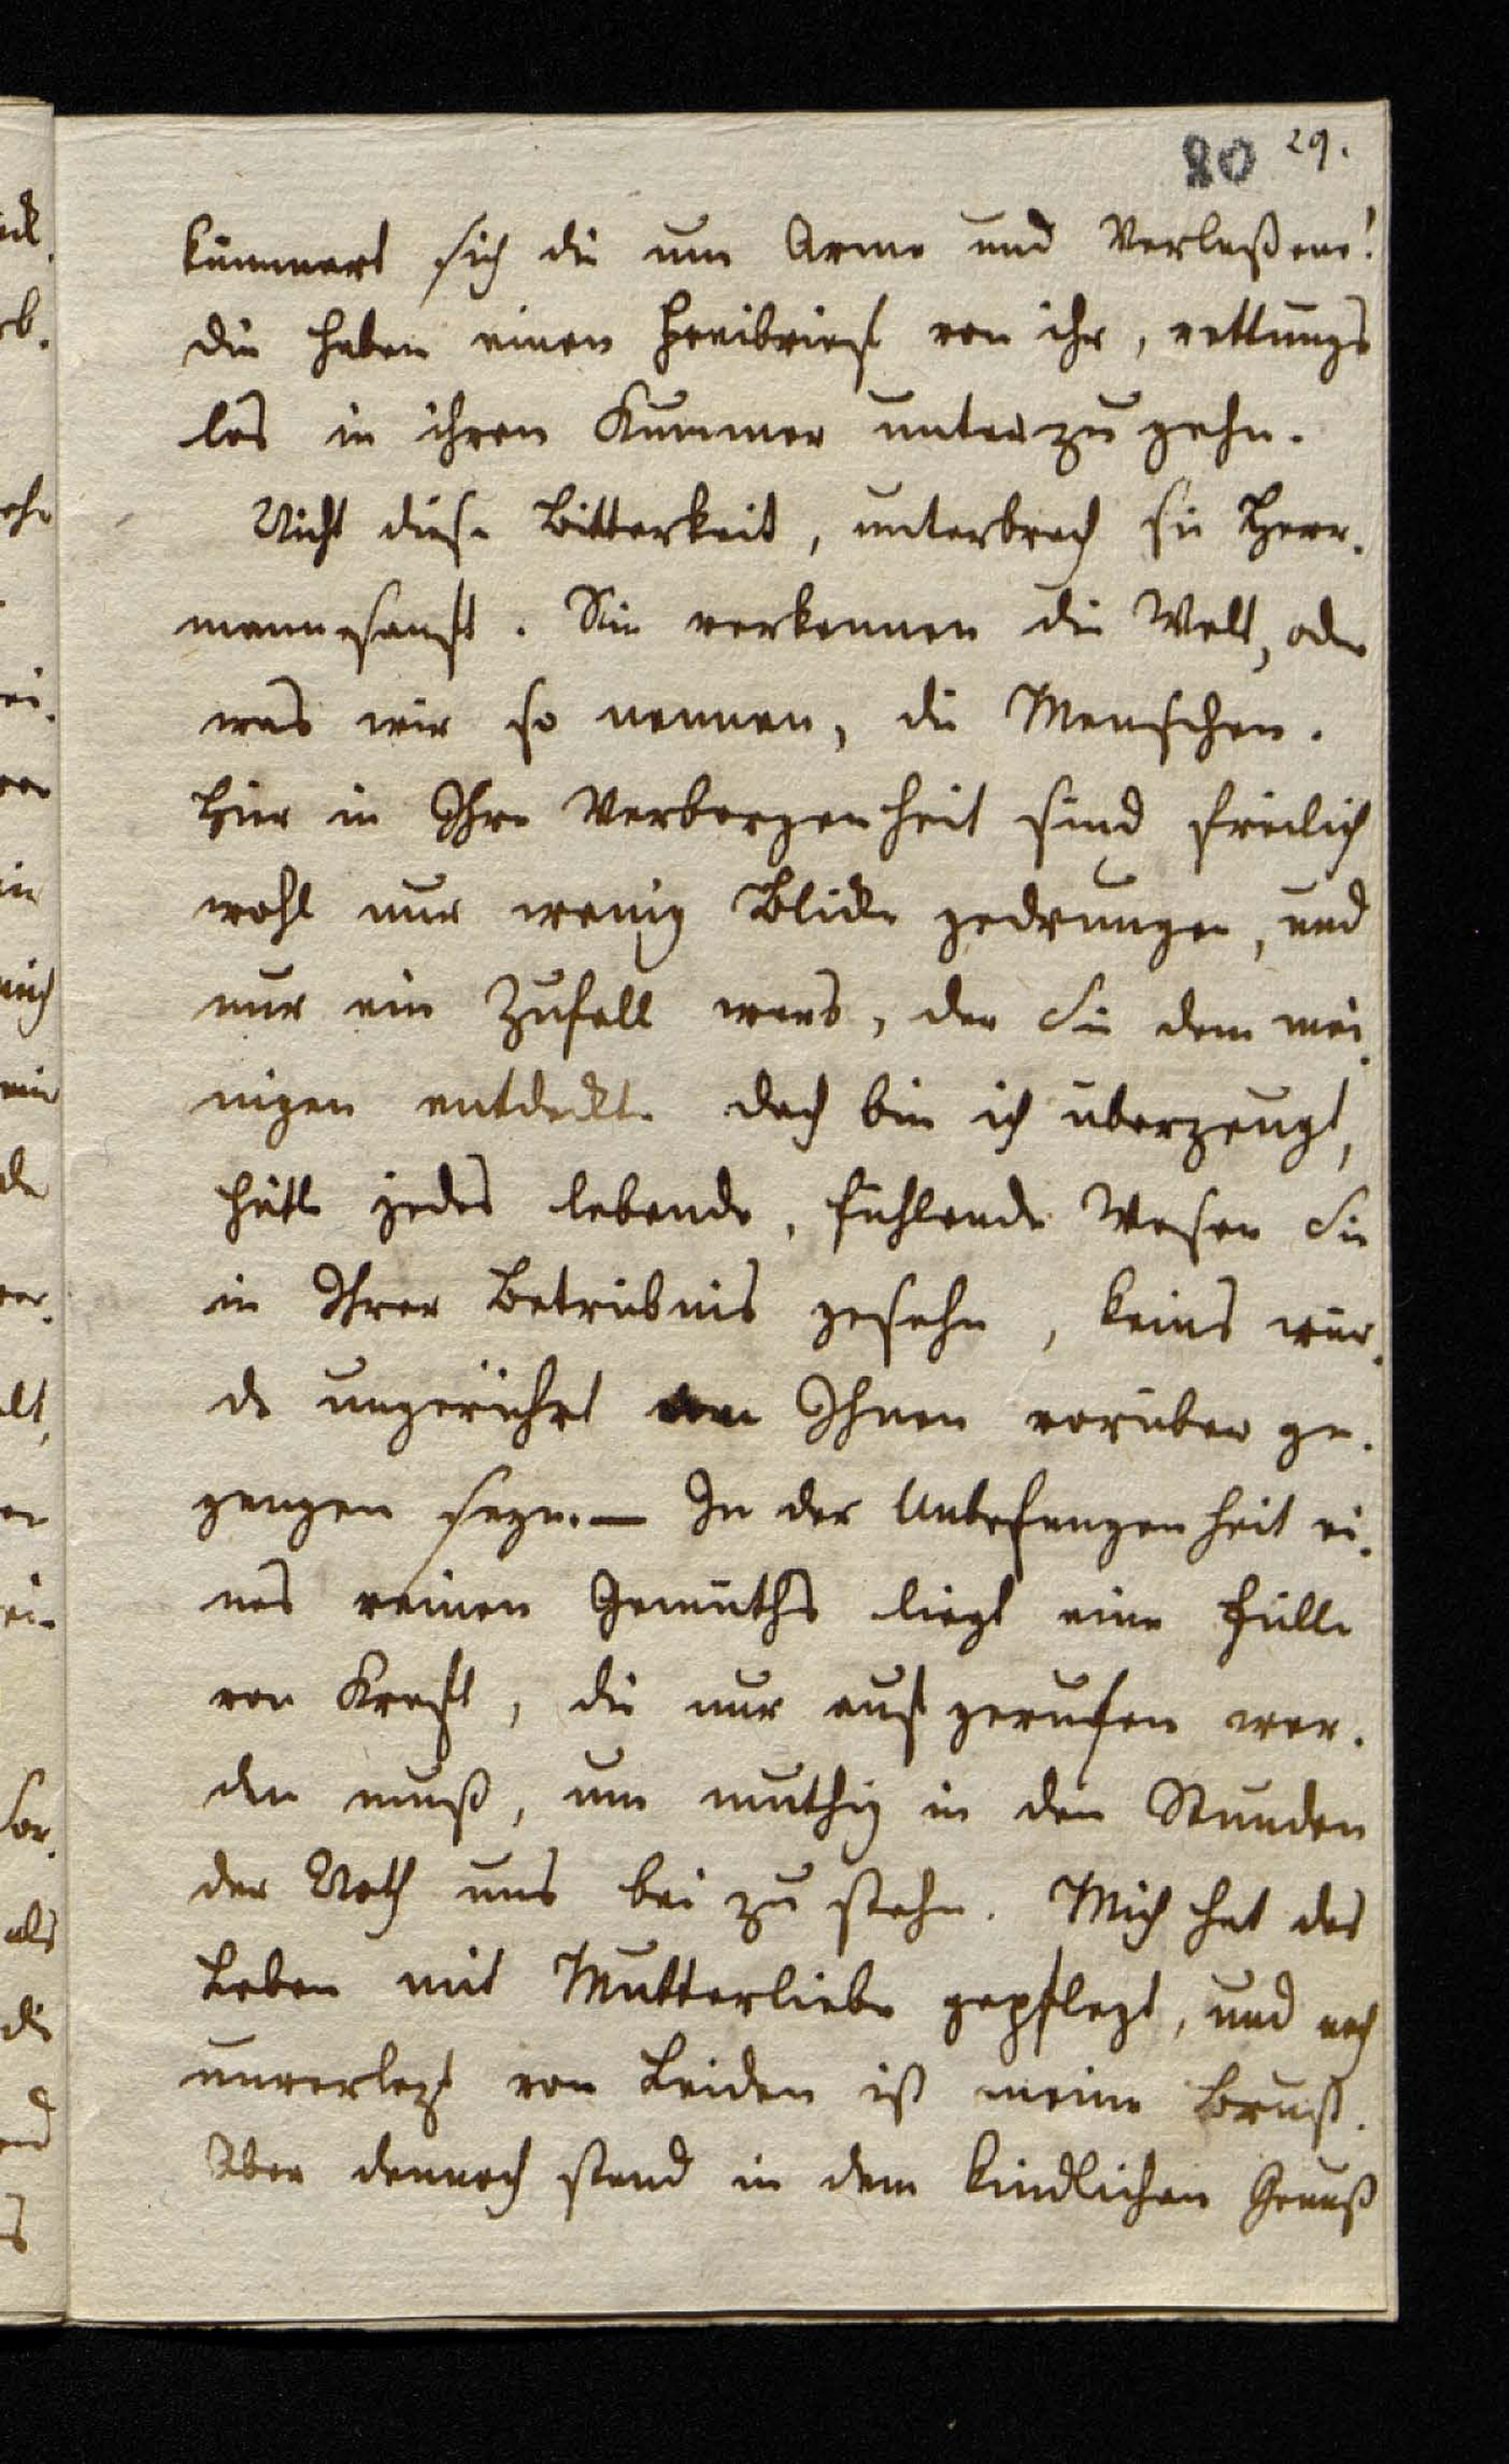 80 29.
kümmert sich die um Arme und Verlaßene!
die haben einen Freibrief von ihr, rettungs
los in ihren Kummer unterzugehn.
Nicht diese Bitterkeit, unterbrach sie Herr-
mann sanft. Sie verkennen die Welt, oder
was wir so nennen, die Menschen.
Hier in Ihre Verborgenheit sind freilich
wohl nur wenig Blicke gedrungen, und
nur ein Zufall wars, der Sie dem mei-
nigen entdeckte doch bin ich überzeugt,
hätte jedes lebende, fühlende Wesen Sie
in Ihrer Betrübnis gesehn, keins wür-
de ungerührt an Ihnen vorüber ge-
gangen seyn. — In der Unbefangenheit ei-
nes reinen Gemüths liegt eine Fülle
von Kraft, die nur aufgerufen wer-
den muß, um muthig in den Stunden
der Noth uns bei zu stehn. Mich hat das
Leben mit Mutterliebe gepflegt, und noch
unverlezt von Leiden ist meine Brust.
Aber dennoch stand in dem kindlichen Genuß